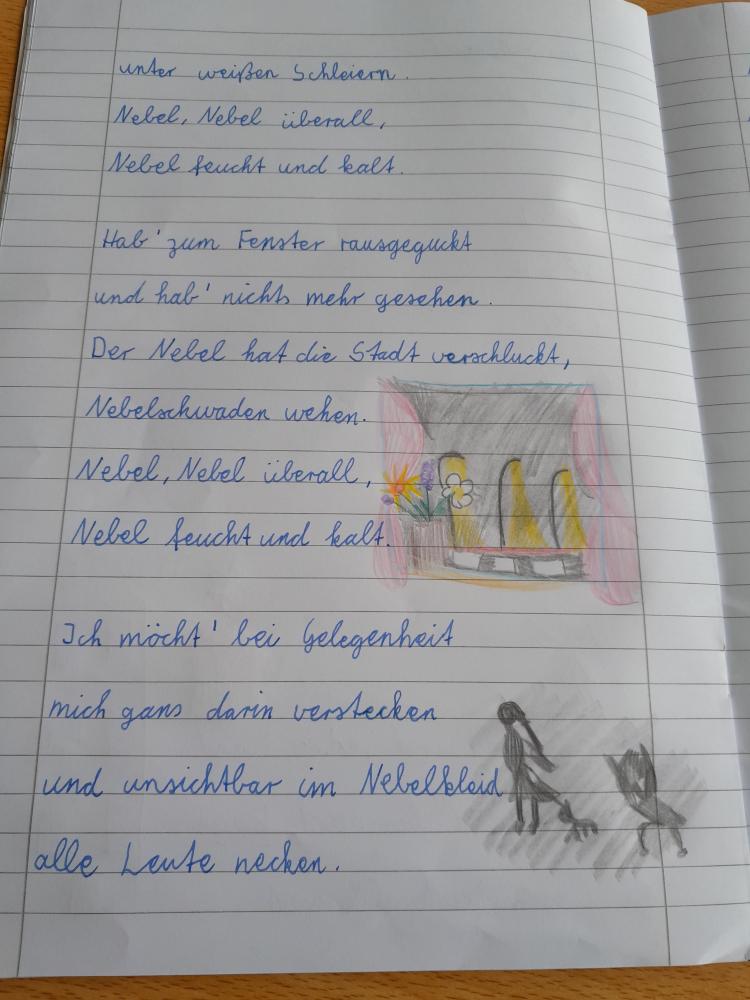 unter weißen Schleiern.
Nebel, Nebel überall,
Nebel feucht und kalt.
Hab' zum Fenster rausgeguckt
und hab' nichts mehr gesehen.
Der Nebel hat die Stadt verschluckt,
Nebelschwaden wehen.
Nebel, Nebel überall,
Nebel feucht und kalt.
Ich möcht' bei Gelegenheit
mich gans darin verstecken
und unsichtbar im Nebelkleid
alle Leute necken.